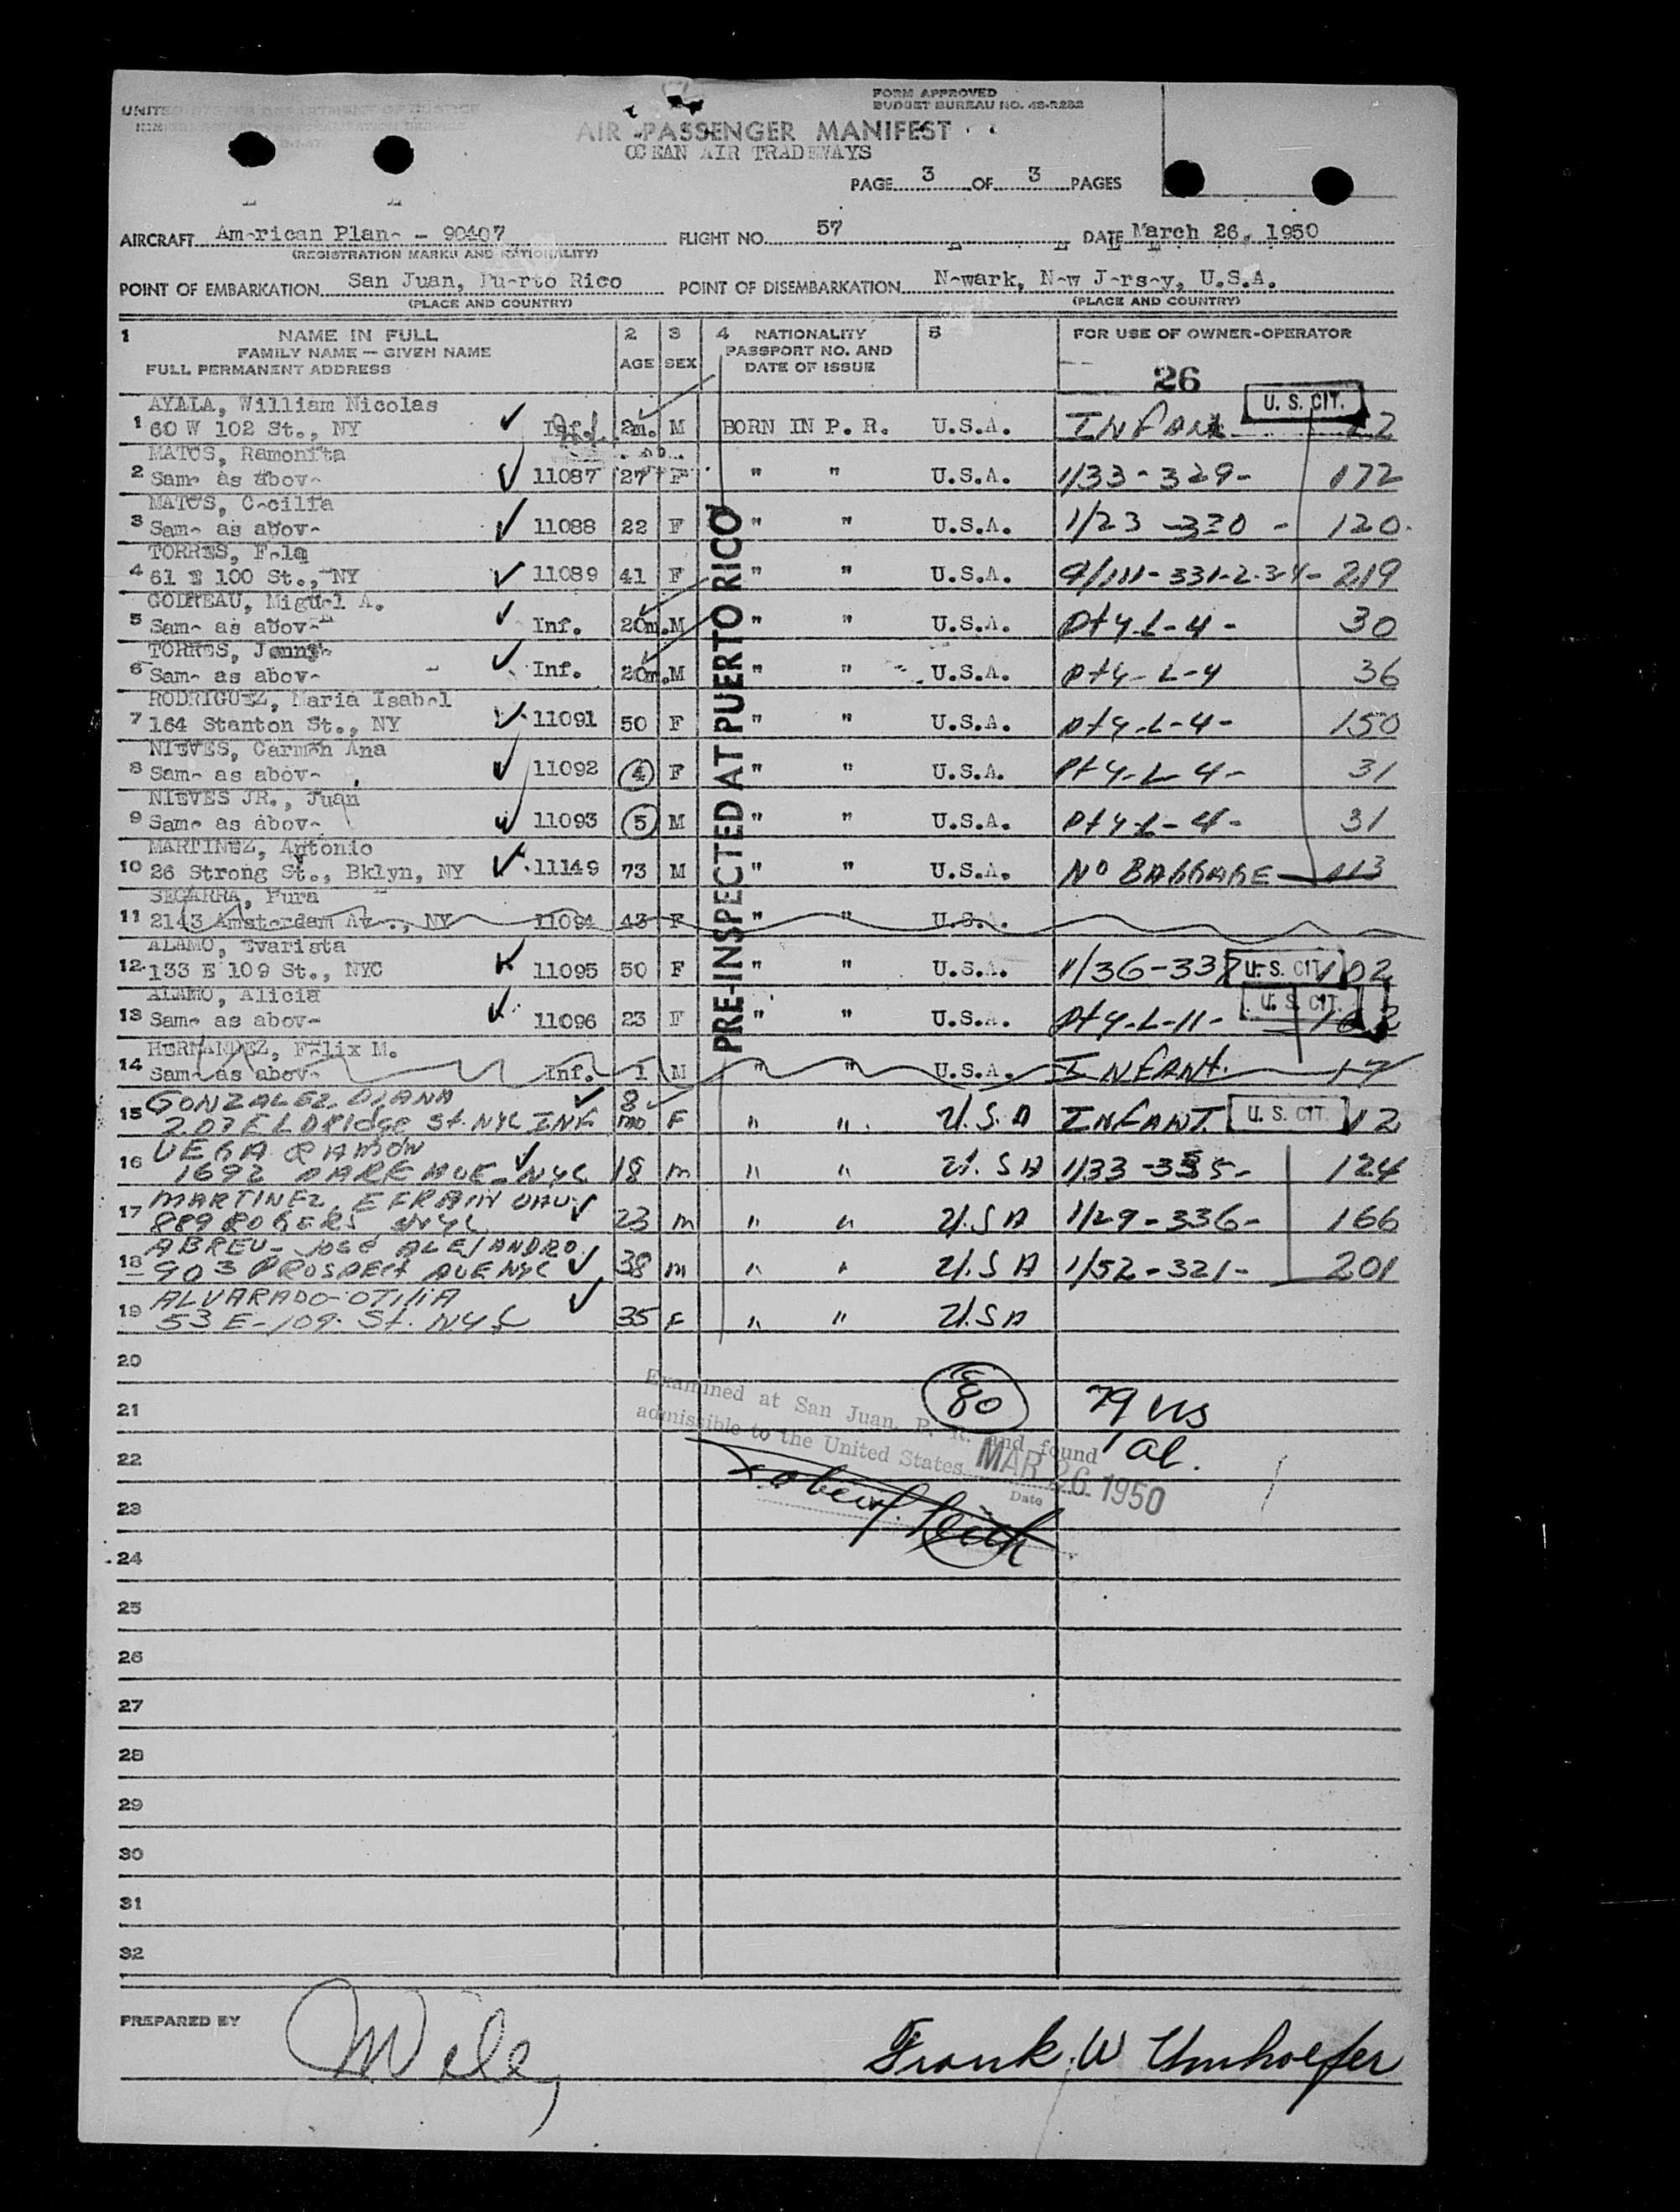 UNITED STATES DEPARTMENT OF JUSTICE
FORM APPROVED
BUDGET BUREAU NO. 43-R232
AIR PASSENGER MANIFEST
OCEAN AIR TRADEWAYS
PAGE 3 OF 3 PAGES
AIRCRAFT American Plane - 90407 FLIGHT NO. 57 DATE March 26, 1950
(REGISTRATION MARKS AND NATIONALITY)
POINT OF EMBARKATION San Juan, Puerto Rico POINT OF DISEMBARKATION Newark, New Jersey, U.S.A.
(PLACE AND COUNTRY) (PLACE AND COUNTRY)
1 NAME IN FULL 2 3 4 NATIONALITY 5 FOR USE OF OWNER-OPERATOR
FAMILY NAME — GIVEN NAME AGE SEX PASSPORT NO. AND
FULL PERMANENT ADDRESS DATE OF ISSUE
26
U. S. CIT.
AYALA, William Nicolas
1 60 W 102 St., NY Inf. 2m. M BORN IN P. R. U.S.A. INFANT
MATOS, Ramonita
2 Same as above 11087 27 F " " U.S.A. 1/33-329- 172
MATOS, Cecilia
3 Same as above 11088 22 F " " U.S.A. 1/23-330- 120
TORRES, Fela
4 61 E 100 St., NY 11089 41 F " " U.S.A. 9/111-331-2-3-4- 219
GODREAU, Miguel A.
5 Same as above Inf. 20m. M " " U.S.A. Pty-L-4- 30
TORRES, Jenny
6 Same as above Inf. 20m. M " " U.S.A. Pty-L-4 36
RODRIGUEZ, Maria Isabel
7 164 Stanton St., NY 11091 50 F " " U.S.A. Pty-L-4- 150
NIEVES, Carmen Ana
8 Same as above 11092 4 F " " U.S.A. Pty-L-4- 31
NIEVES JR., Juan
9 Same as above 11093 5 M " " U.S.A. Pty-L-4- 31
MARTINEZ, Antonio
10 26 Strong St., Bklyn, NY 11149 73 M " " U.S.A. NO BAGGAGE 113
SEGARRA, Pura
11 2143 Amsterdam Av., NY 11094 43 F " " U.S.A.
ALAMO, Evarista
12 133 E 109 St., NYC 11095 50 F " " U.S.A. 1/36-337 U. S. CIT. 102
ALAMO, Alicia
13 Same as above 11096 23 F " " U.S.A. Pty-L-11- U. S. CIT.
HERNANDEZ, Felix M.
14 Same as above Inf. 1 M " " U.S.A. INFANT 17
GONZALEZ DIANA
15 207 ELDRIDGE St. NYC INF 8 mo F " " U.S.A INFANT U. S. CIT. 12
VEGA RAMON
16 1692 PARK AVE NYC 18 m " " U.S A 1/33-335- 124
MARTINEZ, EFRAIN
17 889 ROGERS NYC 23 m " " U.S A 1/29-336- 166
ABREU- JOSE ALEJANDRO
18 903 PROSPECT AVE NYC 38 m " " U.S A 1/52-321- 201
ALVARADO-OTILIA
19 53 E-109- St. NYC 35 F " " U.S A
PRE-INSPECTED AT PUERTO RICO
20
21 80 79 US
22 1 al.
Examined at San Juan, P. R. and found
admissible to the United States MAR 26 1950
Date
23
24
25
26
27
28
29
30
31
32
PREPARED BY
Frank W Umhoefer